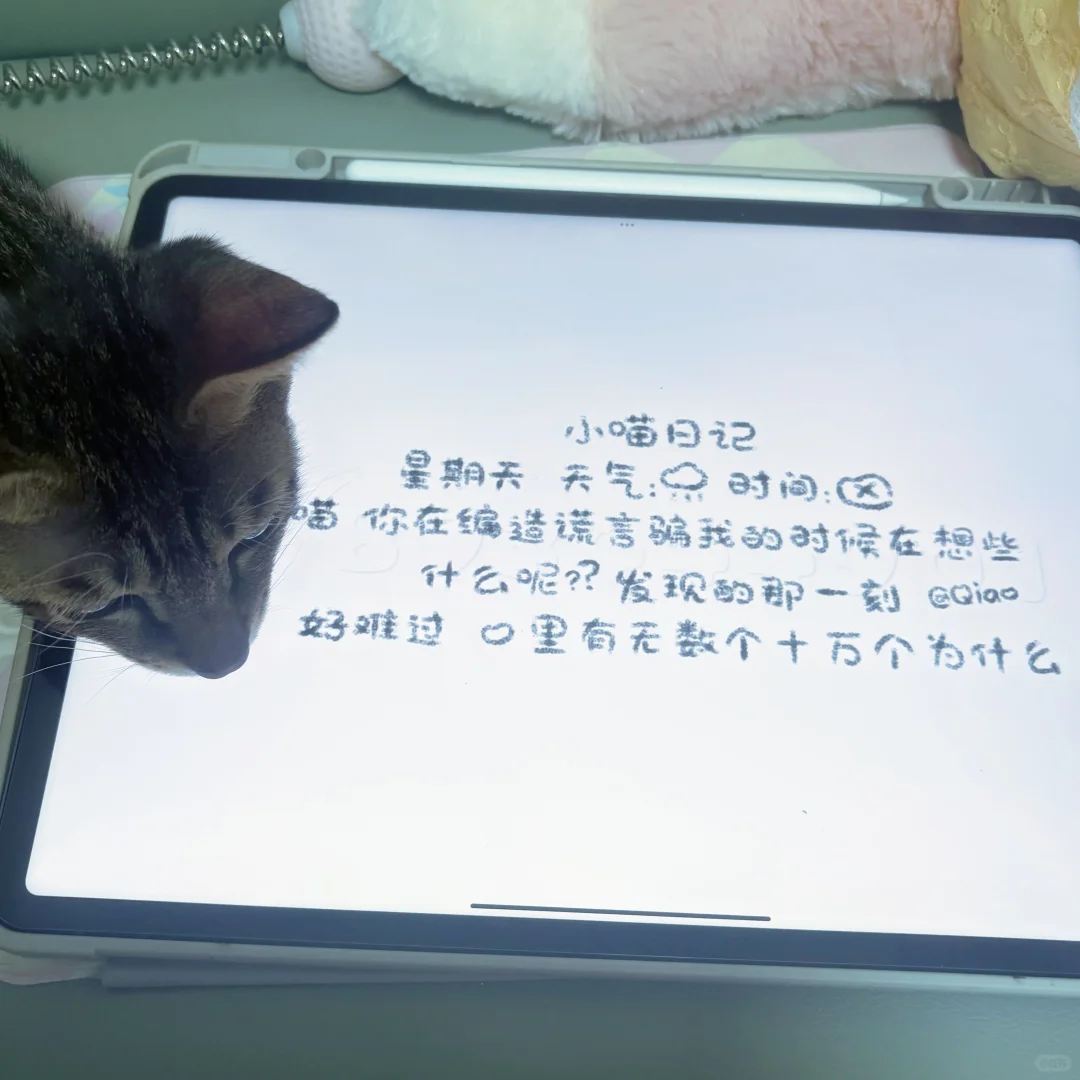 小喵日记
星期天 天气: 时间:
喵 你在编造谎言骗我的时候在想些
什么呢?? 发现的那一刻 @Qiao
好难过 里有无数个十万个为什么